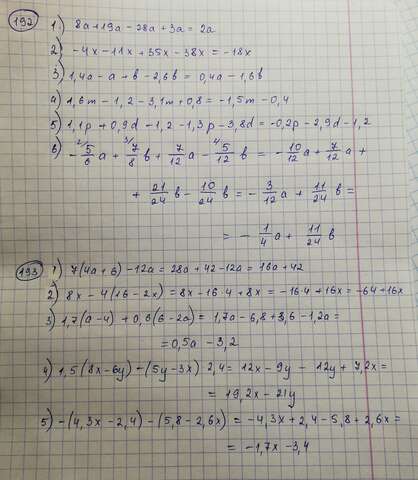 192 1) 8a+19a-28a+3a=2a
2) -4x-11x+35x-38x=-18x
3) 1,4a-a+b-2,6b=0,4a-1,6b
4) 1,6m-1,2-3,1m+0,8=-1,5m-0,4
5) 1,1p+0,9d-1,2-1,3p-3,8d=-0,2p-2,9d-1,2
6) -5/6a+7/8b+7/12a-5/12b=-10/12a+7/12a+
+21/24b-10/24b=-3/12a+11/24b=
=-1/4a+11/24b
193 1) 7(4a+6)-12a=28a+42-12a=16a+42
2) 8x-4(16-2x)=8x-16·4+8x=-16·4+16x=-64+16x
3) 1,7(a-4)+0,6(6-2a)=1,7a-6,8+3,6-1,2a=
=0,5a-3,2
4) 1,5(8x-6y)-(5y-3x)2,4=12x-9y-12y+7,2x=
=19,2x-21y
5) -(4,3x-2,4)-(5,8-2,6x)=-4,3x+2,4-5,8+2,6x=
=-1,7x-3,4